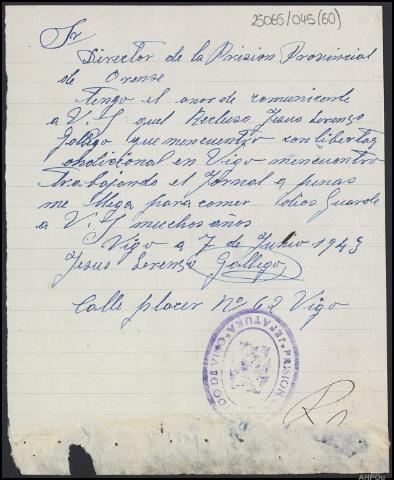 25065/045(60)
Sr
Director de la Prision Provincial
de Orense
Tengo el onor de comunicarle
a V.S quel Recluso Jesus Lorenzo
Gallego que mencuentro con libertaz
condiccional en Vigo mencuentro
trabajando el Jornal a penas
me llega para comer Dios Guarde
a V.S muchos años
Vigo a 7 de Junio 1943
Jesus Lorenzo Gallego
Calle placer Nº 62 Vigo
PRISION
JEFATURA
AHPOu